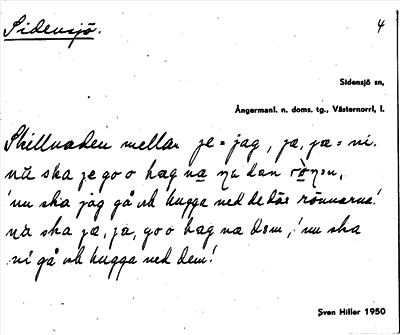 Sidensjö. 4
Sidensjö sn,
Ångermanl. n. doms. tg., Västernorrl, l.
Skillnaden mellan je = jag, ja, jæ = ni.
nů ska je go o hag na dan rònen,
'nu ska jag gå och hugga ned de där rönnarna.'
nů ska jæ, ja, go o hag na dem, 'nu ska
ni gå och hugga ned dem'.
Sven Hiller 1950